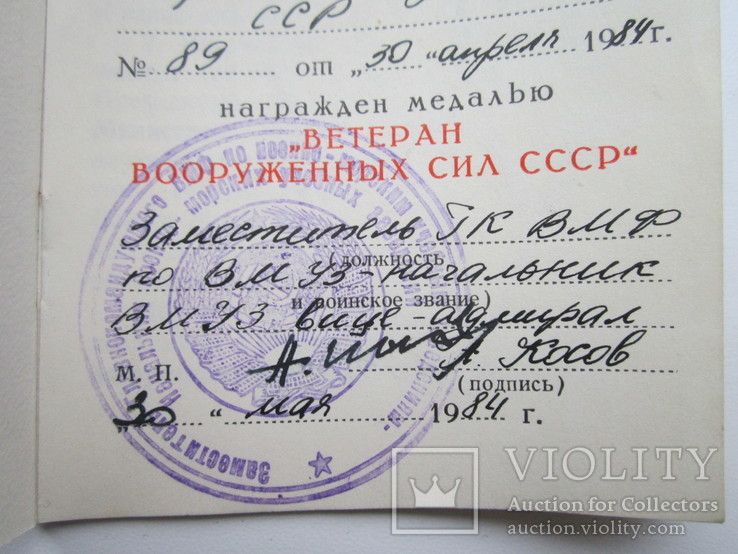 СССР
№ 89 от „30“ апреля 1984 г.
награжден медалью
„ВЕТЕРАН
ВООРУЖЕННЫХ СИЛ СССР“
Заместитель ГК ВМФ
(должность
по ВМУЗ-начальник
и воинское звание)
ВМУЗ вице-адмирал
А. Косов
М. П.
(подпись)
„30“ мая 1984 г.
VIOLITY
Auction for Collectors
auction.violity.com